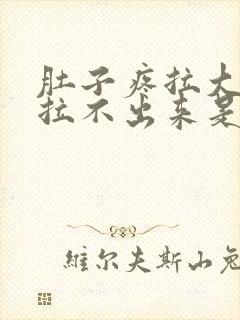 肚子疼拉大
拉不出来是
維尔夫斯山兔